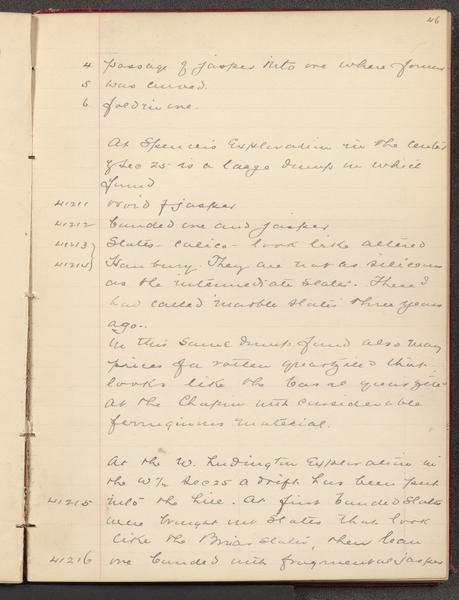 46
4 passage of jasper into ore where former
5 was curved.
6 fold in ore.
At Spencer's Exploration in the center
of Sec 25 is a large dump in which
found
41211 ovoid of jasper
41212 banded ore and jasper
41213 Slates - calico - look like altered
41214 Hanbury. They are not as siliceous
as the intermediate slates. These I
had called marble slates three years
ago.
In this same dump found also many
pieces of a rotten quartzite that
looks like the basal quartzite
at the Chapin with considerable
ferruginous material.
At the W. Ludington Exploration in
the W 1/2 Sec 25 a drift has been put
41215 into the hill. At first banded slates
were brought out slates that look
like the Brier slates, then lean
41216 ore banded with fragmental jasper